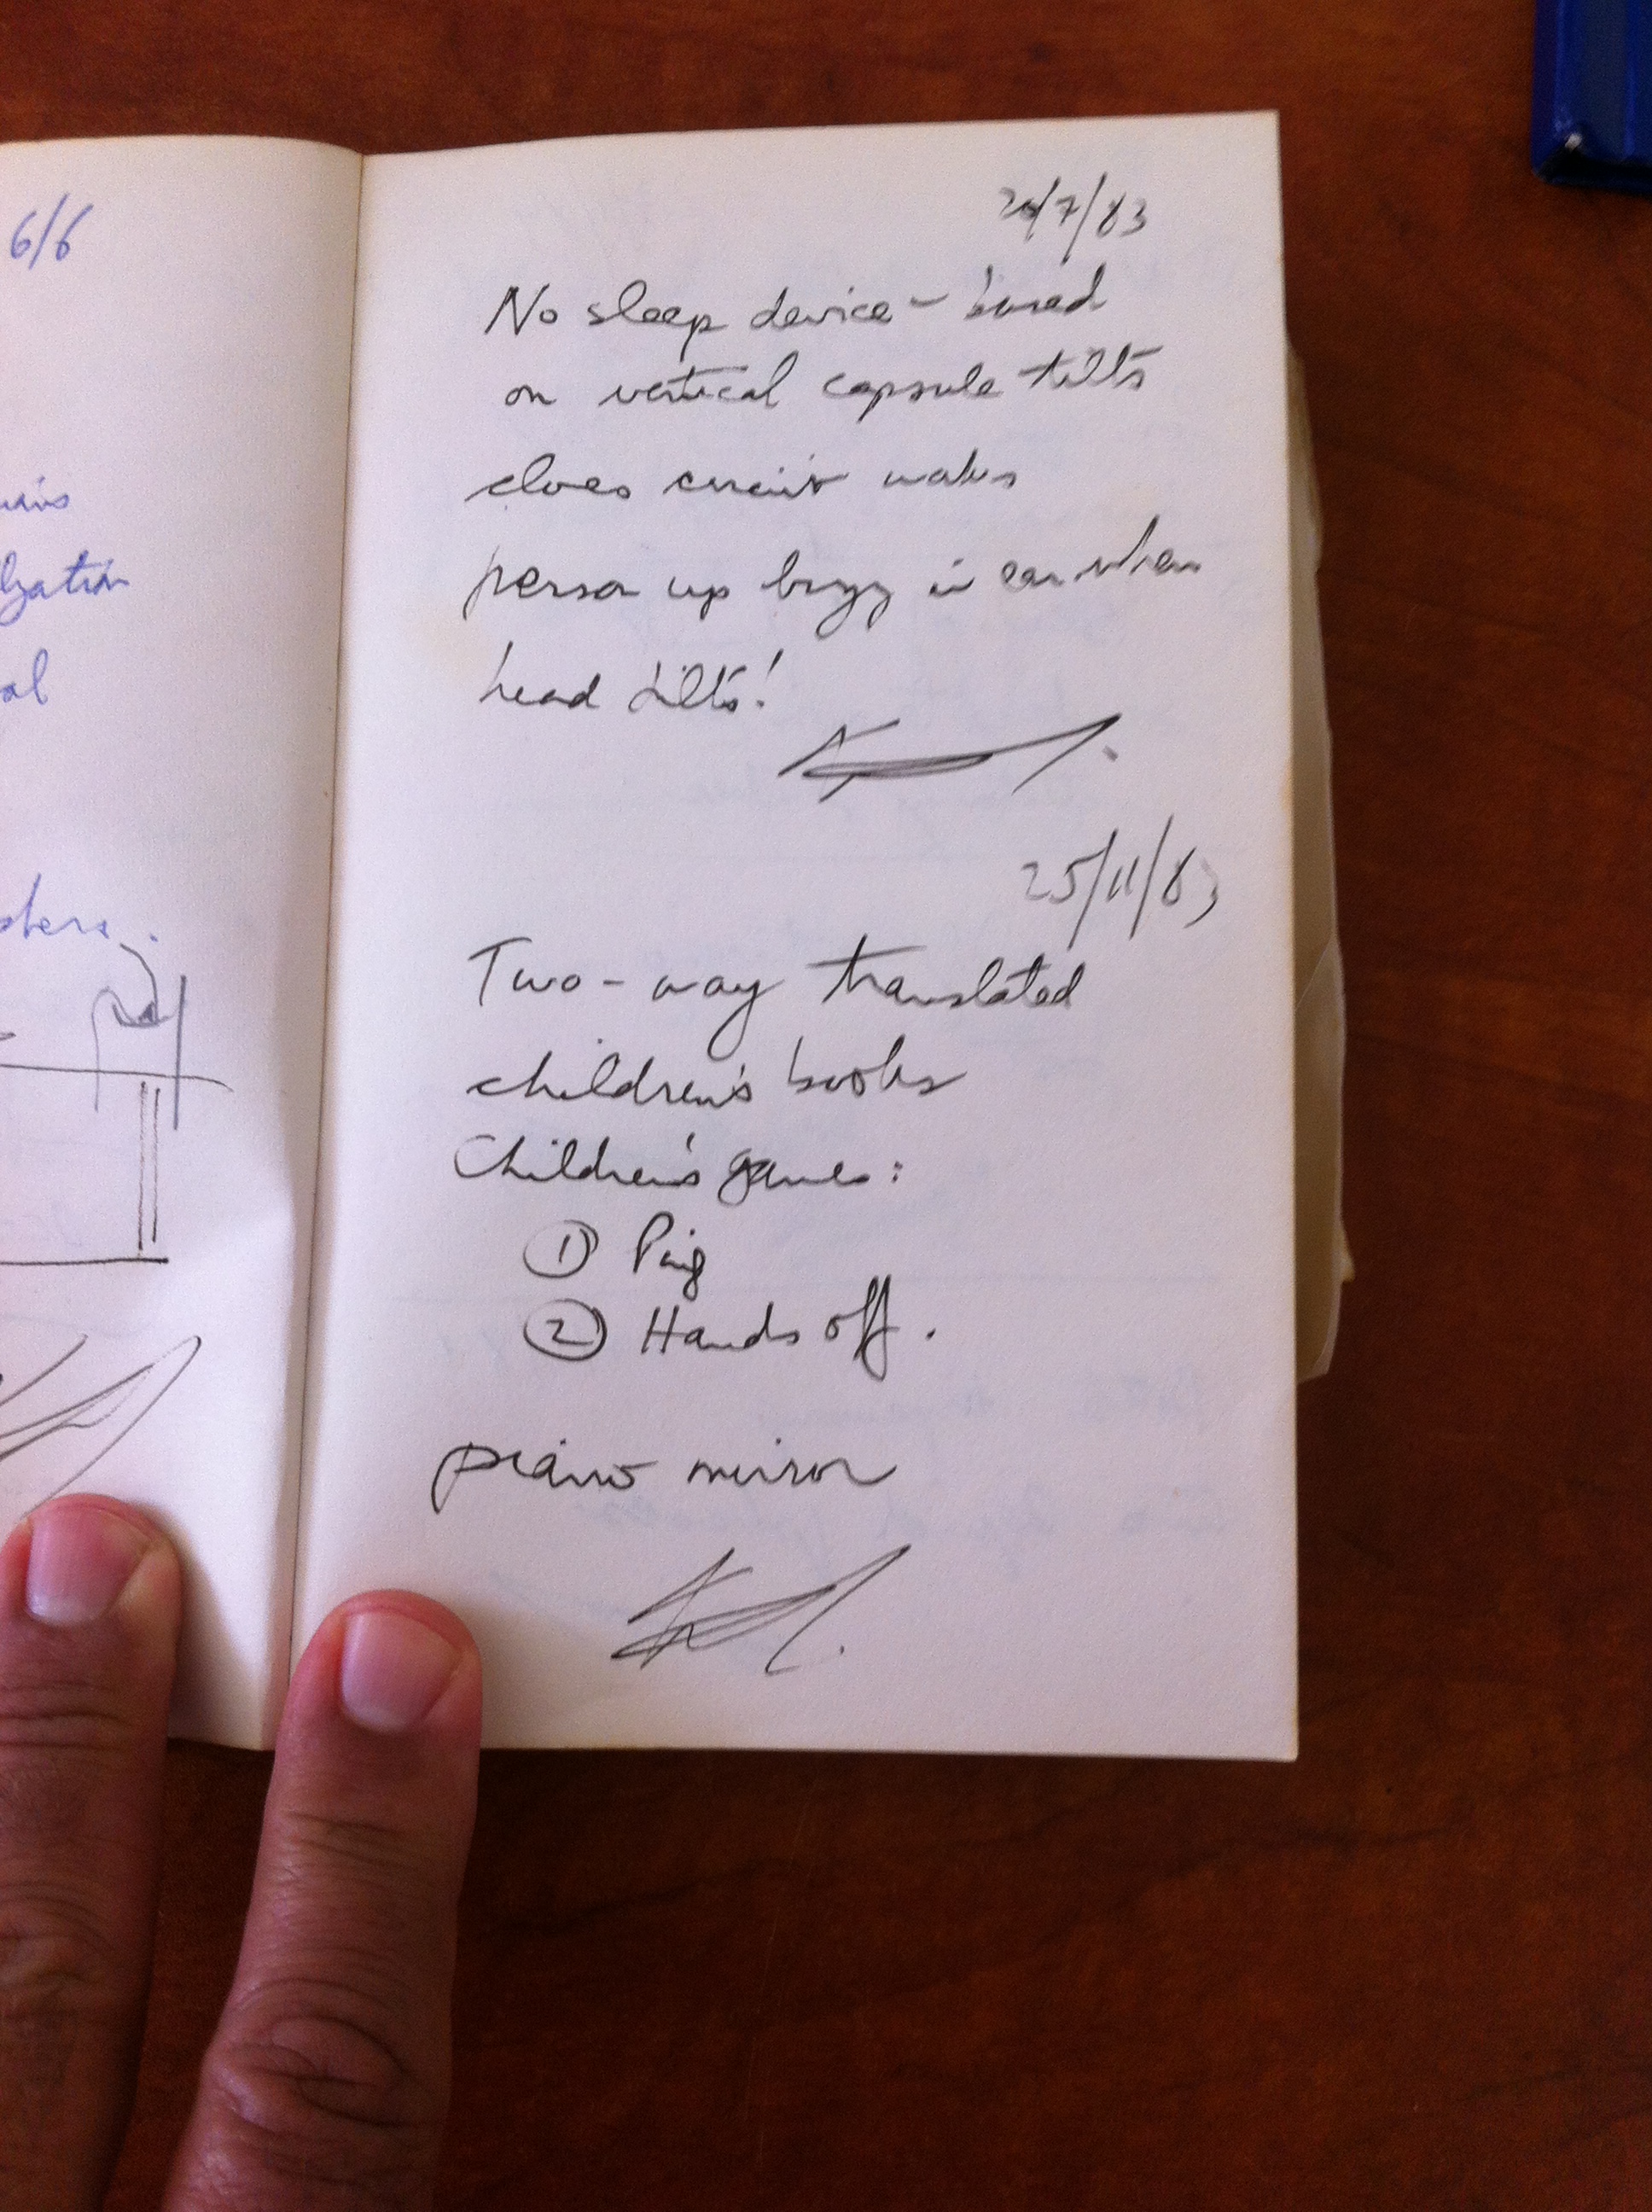 6/6
lization
/7/83
No sleep device - based
on vertical capsule tilts
closes circuit wakes
person up buzz in ear when
head tilts!
25/11/83
Two-way translated
children's books
Children's games:
① Ping
② Hands off.
piano mirror